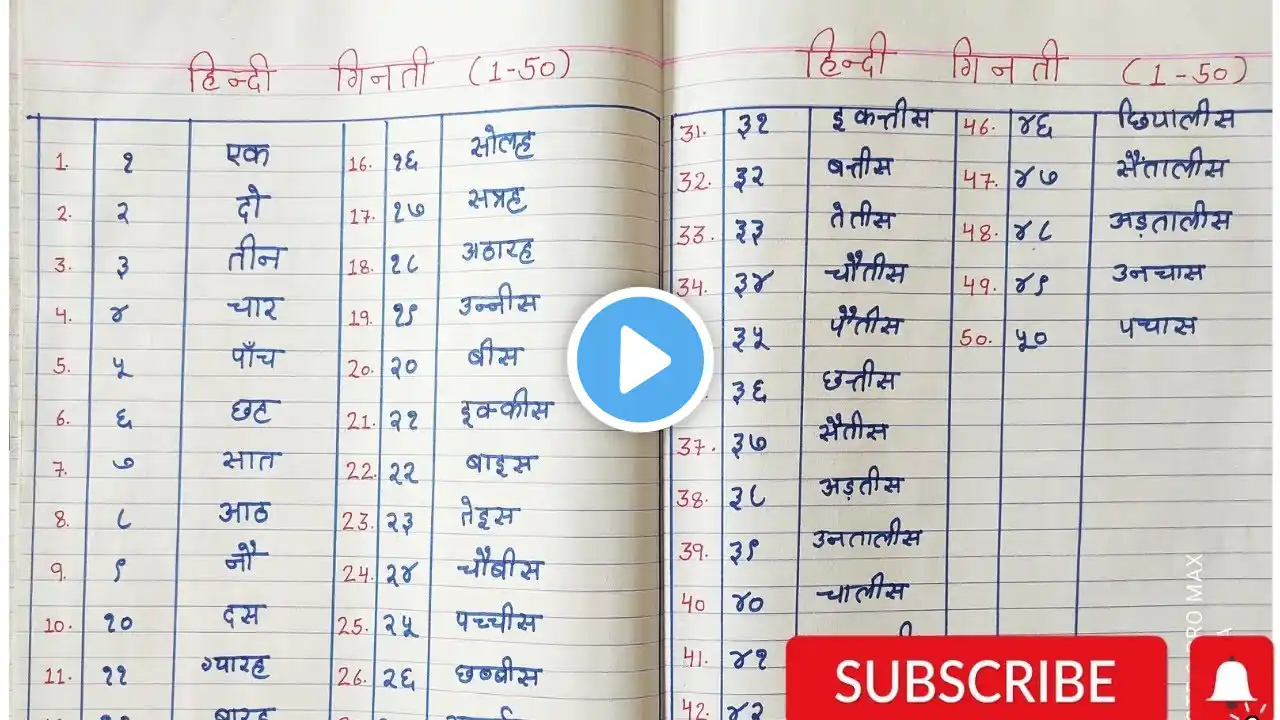 हिन्दी गिनती (1-50)
1. १ एक 16. १६ सोलह
2. २ दो 17. १७ सत्रह
3. ३ तीन 18. १८ अठारह
4. ४ चार 19. १९ उन्नीस
5. ५ पाँच 20. २० बीस
6. ६ छह 21. २१ इक्कीस
7. ७ सात 22. २२ बाइस
8. ८ आठ 23. २३ तेइस
9. ९ नौ 24. २४ चौबीस
10. १० दस 25. २५ पच्चीस
11. ११ ग्यारह 26. २६ छब्बीस
हिन्दी गिनती (1-50)
31. ३१ इकत्तीस 46. ४६ छियालीस
32. ३२ बत्तीस 47. ४७ सैंतालीस
33. ३३ तेतीस 48. ४८ अड़तालीस
34. ३४ चौतीस 49. ४९ उनचास
३५ पैंतीस 50. ५० पचास
३६ छत्तीस
37. ३७ सैतीस
38. ३८ अड़तीस
39. ३९ उनतालीस
40 ४० चालीस
41. ४१
42. ४२
SUBSCRIBE
PRO MAX